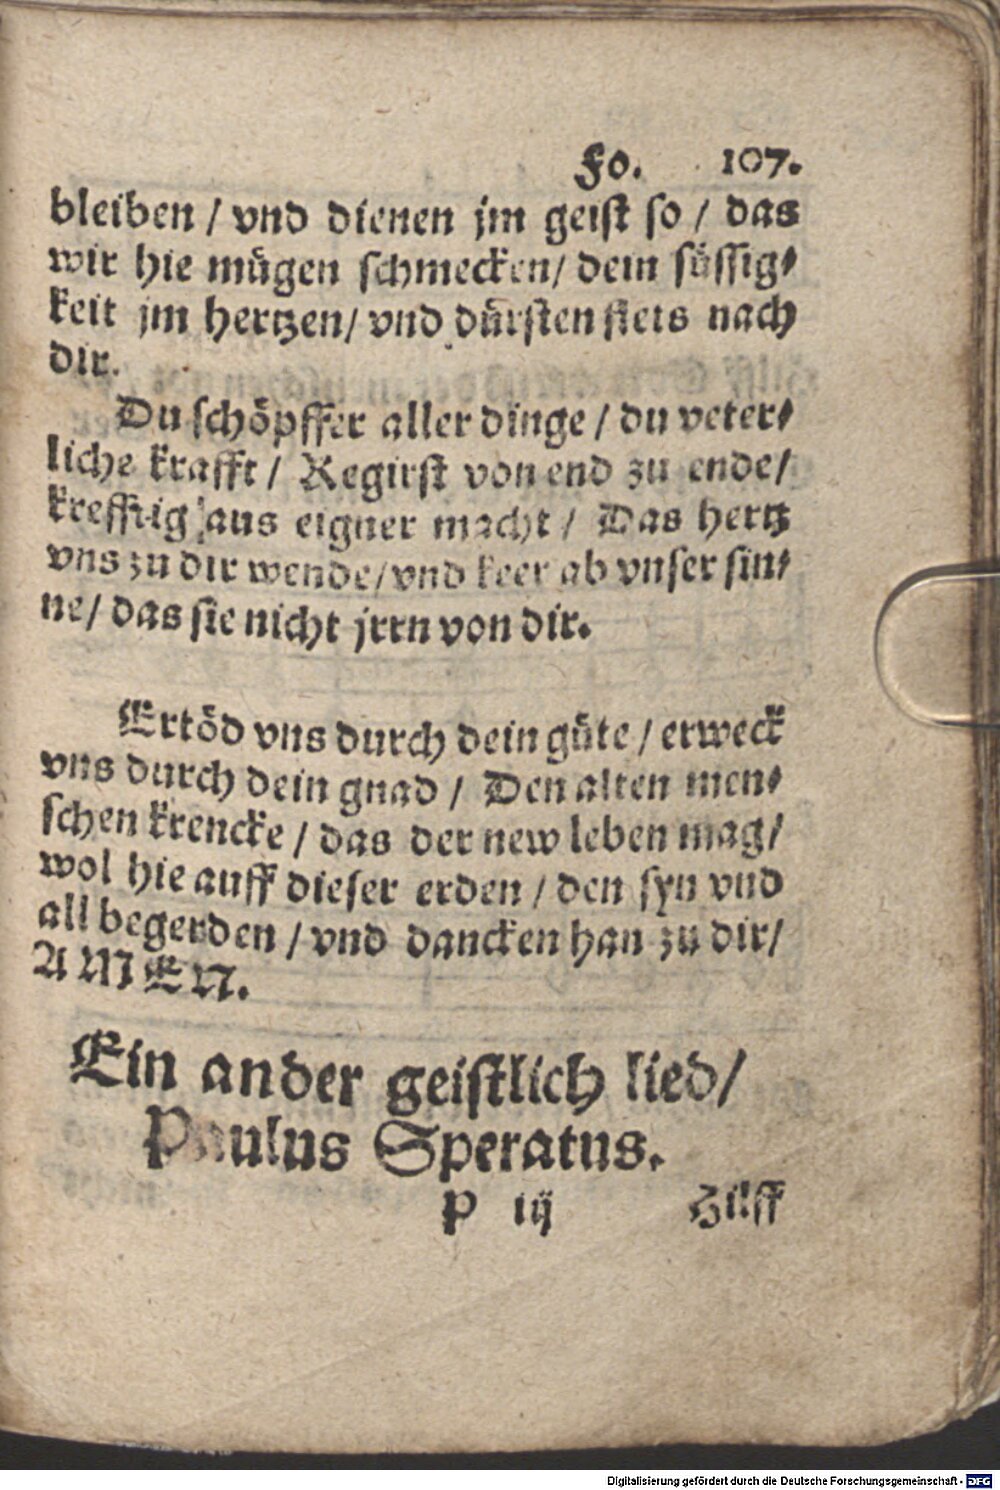 Fo. 107.
bleiben / vnd dienen jm geist so / das
wir hie mügen schmecken/ dein süssig⸗
keit jm hertzen/ vnd dürsten stets nach
dir.
Du schöpffer aller dinge / du veter⸗
liche krafft / Regirst von end zu ende/
krefftig aus eigner macht / Das hertz
vns zu dir wende/vnd keer ab vnser sin⸗
ne/ das sie nicht jrrn von dir.
Ertöd vns durch dein güte / erweck
vns durch dein gnad / Den alten men⸗
schen krencke / das der new leben mag/
wol hie auff dieser erden / den syn vnd
all begerden / vnd dancken han zu dir/
AMEN.
Ein ander geistlich lied/
Paulus Speratus.
P iij Hilff
Digitalisierung gefördert durch die Deutsche Forschungsgemeinschaft - DFG